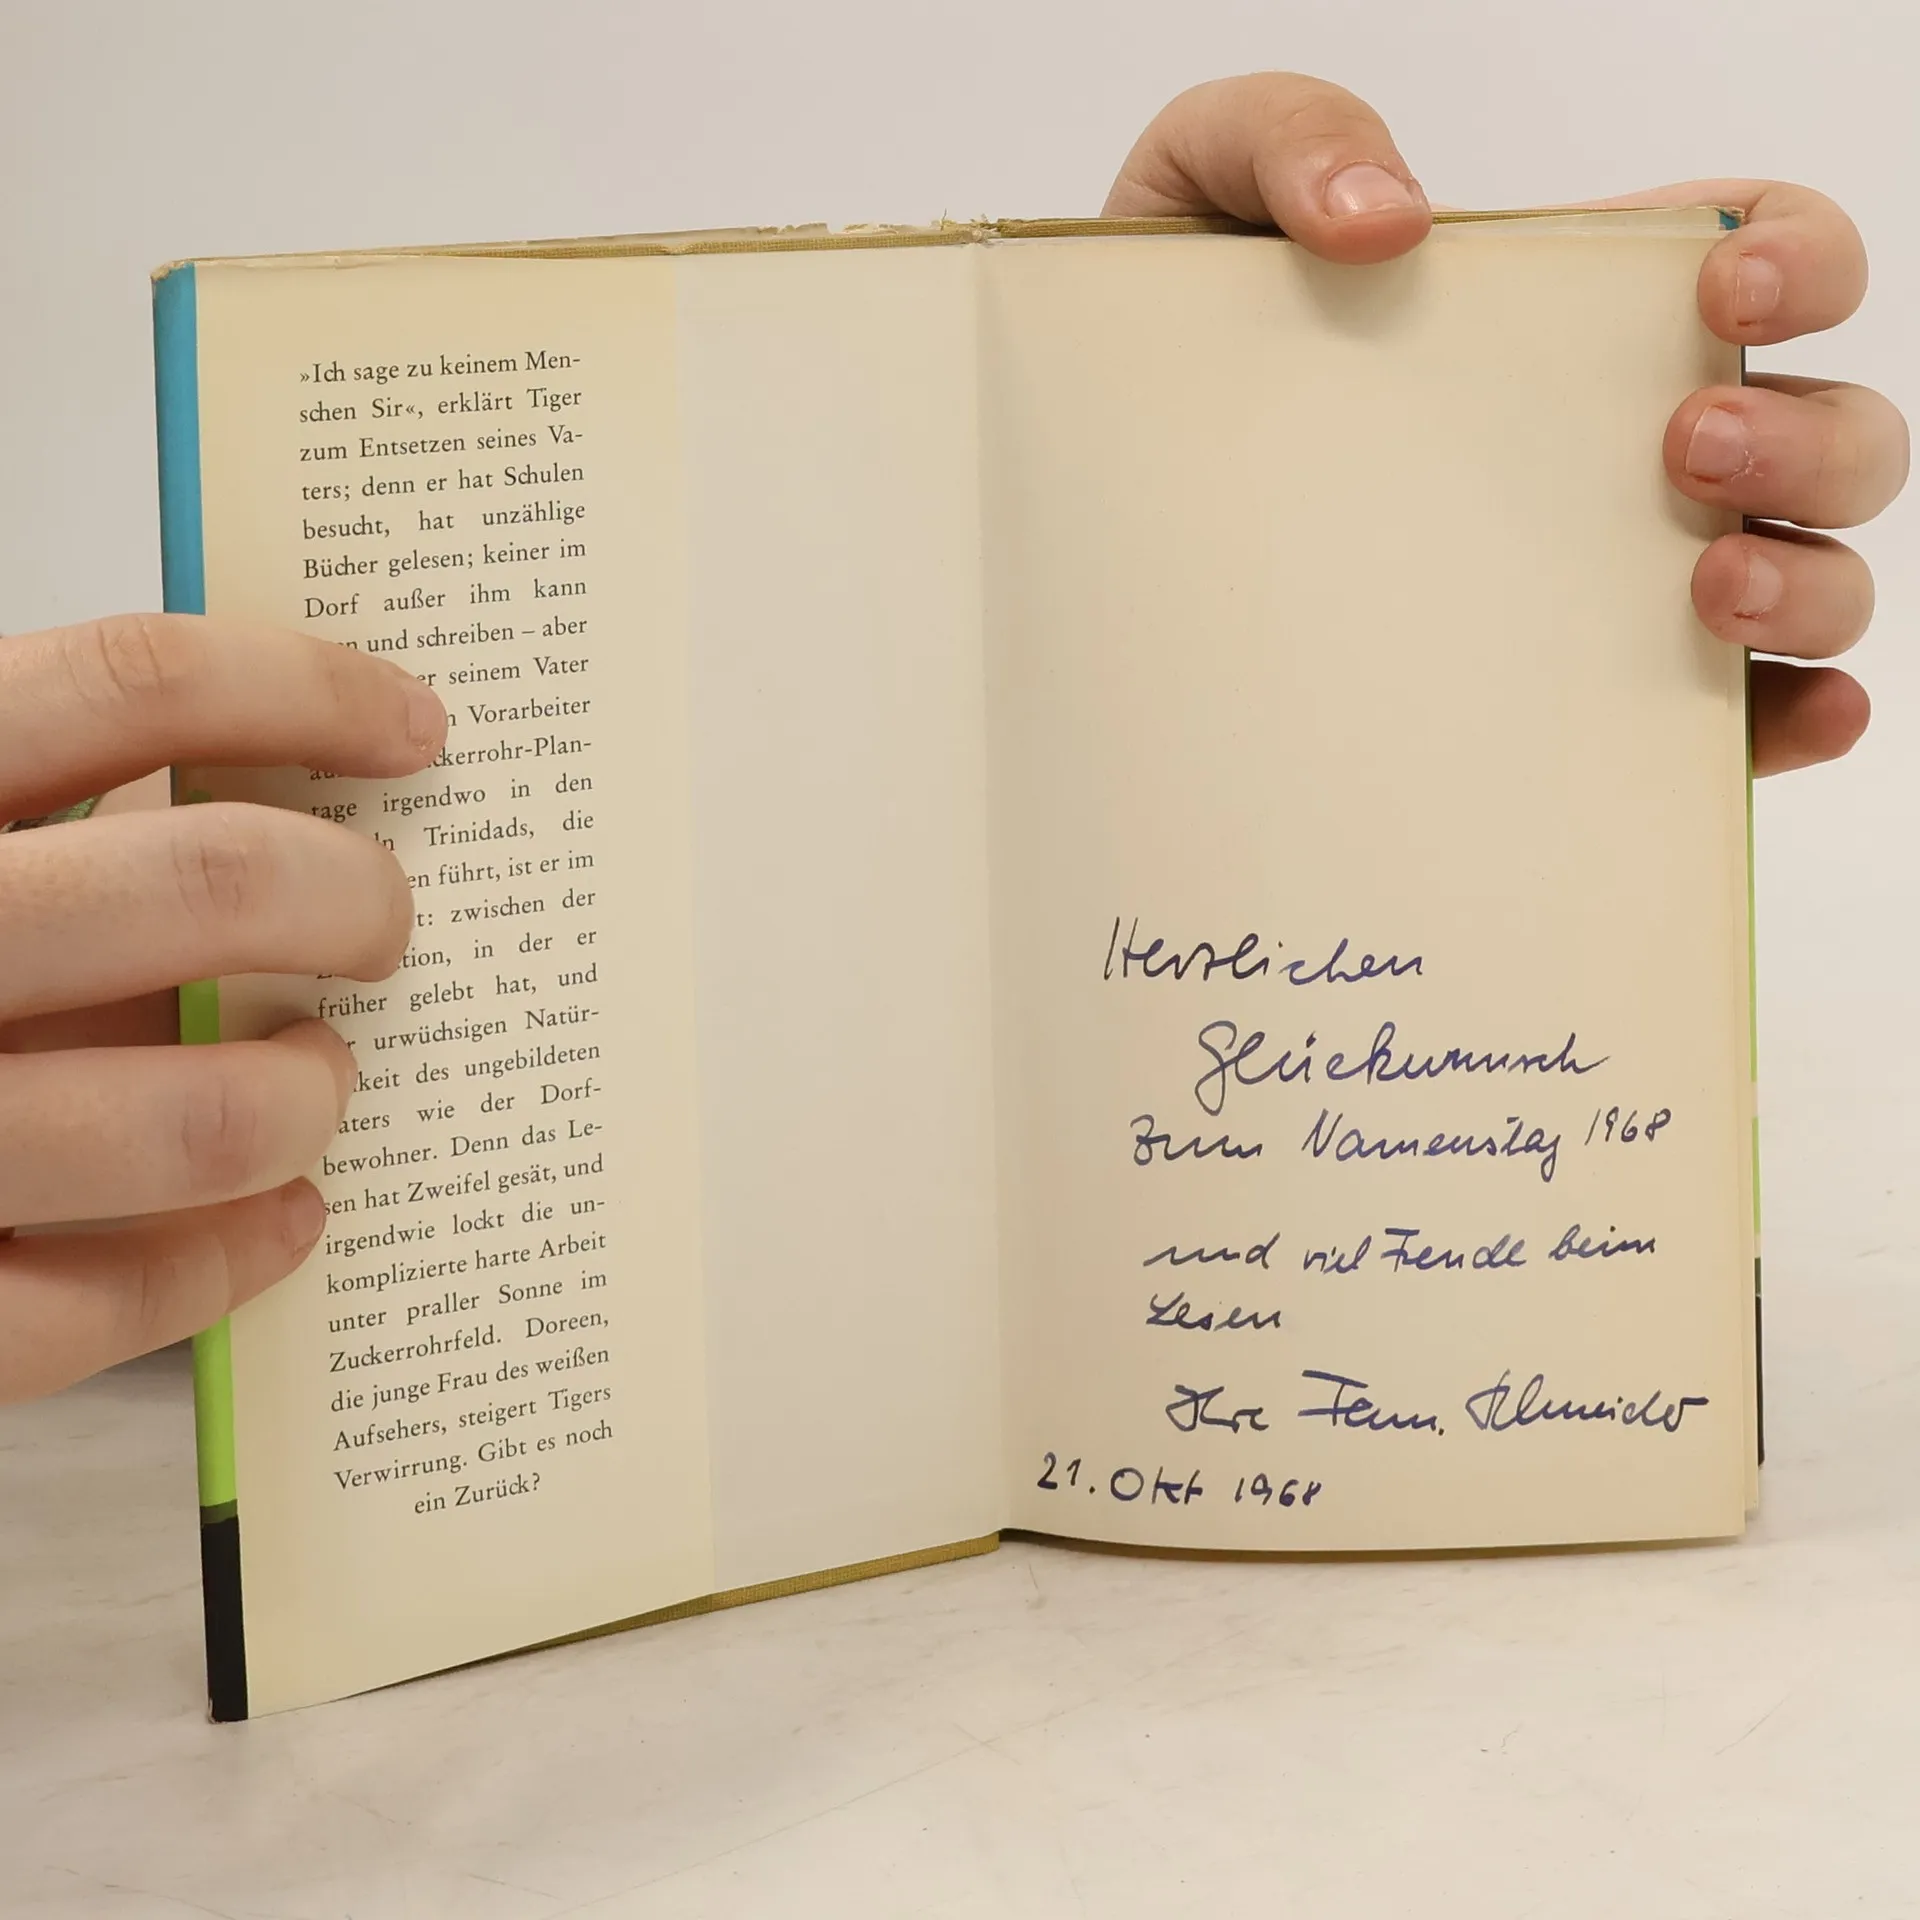 »Ich sage zu keinem Men-
schen Sir«, erklärt Tiger
zum Entsetzen seines Va-
ters; denn er hat Schulen
besucht, hat unzählige
Bücher gelesen; keiner im
Dorf außer ihm kann
und schreiben – aber
seinem Vater
Vorarbeiter
ckerrohr-Plan-
tage irgendwo in den
Trinidads, die
führt, ist er im
zwischen der
tion, in der er
früher gelebt hat, und
urwüchsigen Natür-
keit des ungebildeten
aters wie der Dorf-
bewohner. Denn das Le-
sen hat Zweifel gesät, und
irgendwie lockt die un-
komplizierte harte Arbeit
unter praller Sonne im
Zuckerrohrfeld. Doreen,
die junge Frau des weißen
Aufsehers, steigert Tigers
Verwirrung. Gibt es noch
ein Zurück?
Herzlichen
Glückwunsch
zum Namenstag 1968
und viel Freude beim
Lesen
Ihre Fam. Schneider
21. Okt 1968